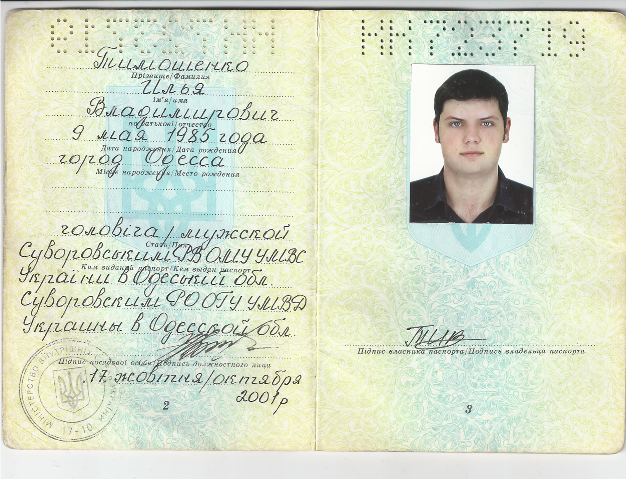 Тимошенко
Прізвище/Фамилия
Илья
Ім'я/имя
Владимирович
по батькові/отчество
9 мая 1985 года
Дата народження/Дата рождения
город Одесса
Місце народження/Место рождения
чоловіча/мужской
Стать/Пол
Суворовським РВ ОМУ УМВС
Ким виданий паспорт/Кем выдан паспорт
України в Одеській обл.
Суворовским РО ОГУ УМВД
Украины в Одесской обл.
Підпис посадової особи/Подпись должностного лица
17 жовтня/октября
2001 р
2
НН723719
Підпис власника паспорта/Подпись владельца паспорта
3